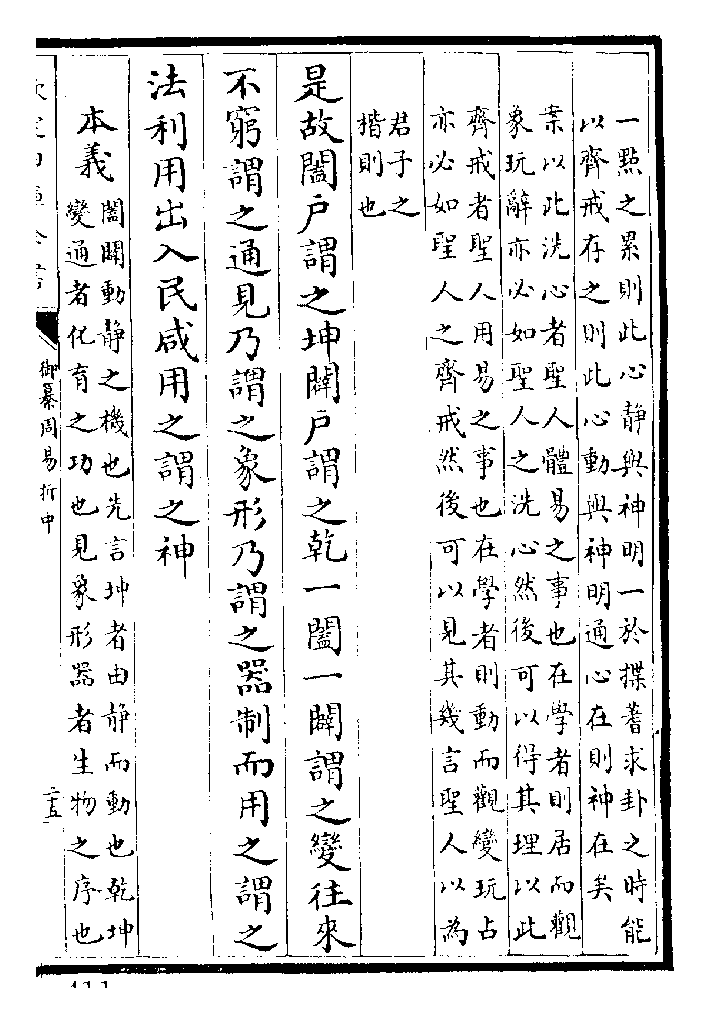 一㸃之累則此心靜與神明一於揲蓍求卦之時能
以齊戒存之則此心動與神明通心在則神在矣
案以此洗心者聖人體易之事也在學者則居而觀
象玩辭亦必如聖人之洗心然後可以得其理以此
齊戒者聖人用易之事也在學者則動而觀變玩占
亦必如聖人之齊戒然後可以見其幾言聖人以為
君子之
揩則也
是故闔戶謂之坤闢戶謂之乾一闔一闢謂之變往來
不窮謂之通見乃謂之象形乃謂之器制而用之謂之
法利用出入民咸用之謂之神
本義
闔闢動靜之機也先言坤者由靜而動也乾坤
變通者化育之功也見象形器者生物之序也
御纂周易折中
二五
411